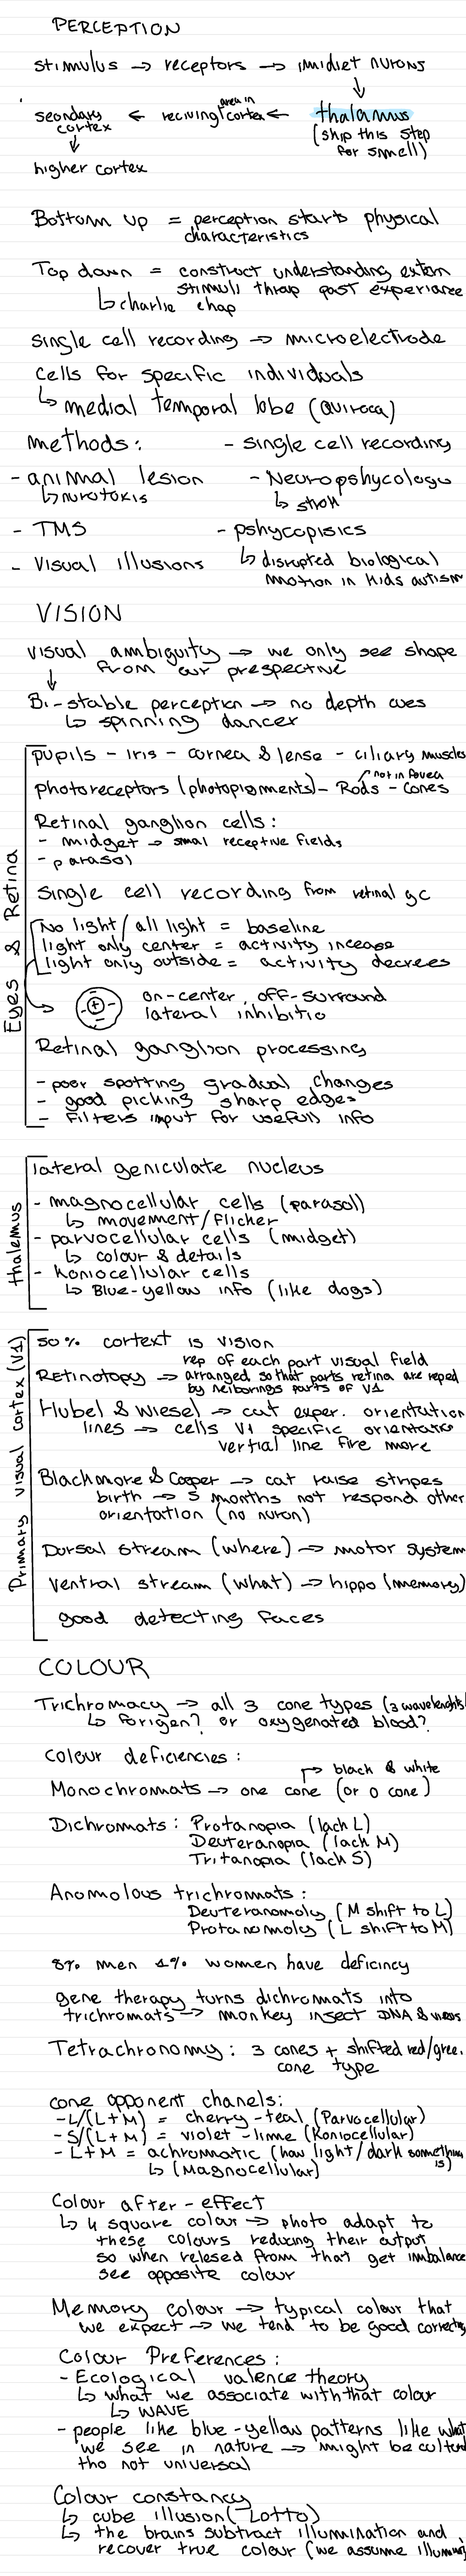 PERCEPTION
stimulus → receptors → imidiet nurons
↓
seondary cortex ← reciving area in cortex ← thalamus
(skip this step for smell)
↓
higher cortex
Bottom up = perception starts physical
characteristics
Top down = construct understanding extern
stimuli throp past experiance
↳ charlie chap
single cell recording → microelectrode
cells for specific individuals
↳ medial temporal lobe (Quiroca)
methods: - single cell recording
- animal lesion - Neuropshycology
↳ nurotoxis ↳ strok
- TMS - pshycopisics
- Visual illusions ↳ disrupted biological
motion in kids autism
VISION
visual ambiguity → we only see shape
from our prespective
↓
Bi-stable perception → no depth cues
↳ spinning dancer
Eyes & Retina
pupils - Iris - cornea & lense - ciliary muscles
not in fovea
photoreceptors (photopigments) - Rods - cones
Retinal ganglion cells:
- midget → smal receptive fields
- parasol
single cell recording from retinal gc
No light/all light = baseline
light only center = activity incease
light only outside = activity decrees
on-center, off-surround
lateral inhibitio
Retinal ganglion processing
- poor spotting gradual changes
- good picking sharp edges
- Filters input for usefull info
thalemus
lateral geniculate nucleus
- magnocellular cells (parasol)
↳ movement/flicker
- parvocellular cells (midget)
↳ colour & details
- Koniocellular cells
↳ Blue-yellow info (like dogs)
Primary visual cortex (V1)
50% cortext is vision
rep of each part visual field
Retinotopy → arranged so that parts retina are reped
by neiborings parts of V1
Hubel & Wiesel → cat exper. orientation
lines → cells V1 specific orientatio
vertial line fire more
Blackmore & Cooper → cat raise stripes
birth → 5 months not respond other
orientation (no nuron)
Dorsal stream (where) → motor system
ventral stream (what) → hippo (memory)
good detecting faces
COLOUR
Trichromacy → all 3 cone types (3 wavelenghts)
↳ forigen? or oxygenated blood?
colour deficiencies:
→ black & white
Monochromats → one cone (or 0 cone)
Dichromats: Protanopia (lach L)
Deuteranopia (lach M)
Tritanopia (lach S)
Anomolous trichromats:
Deuteranomoly (M shift to L)
Protanomoly (L shift to M)
8% men 1% women have deficincy
gene therapy turns dichromats into
trichromats → monkey insect DNA & virus
Tetrachronomy: 3 cones + shifted red/gree.
cone type
cone opponent chanels:
- L/(L+M) = cherry-teal (Parvocellular)
- S/(L+M) = violet-lime (Koniocellular)
- L+M = achromatic (how light/dark something is)
↳ (Magnocellular)
Colour after-effect
↳ 4 square colour → photo adapt to
these colours reducing their output
so when relesed from that get imbalance
see opposite colour
Memory colour → typical colour that
we expect → we tend to be good correcting
Colour Preferences:
- Ecological valence theory
↳ what we associate with that colour
↳ WAVE
- people like blue-yellow patterns like what
we see in nature → might be cultur
tho not universal
Colour constancy
↳ cube illusion (Lotto)
↳ the brains subtract illumination and
recover true colour (we assume illumin